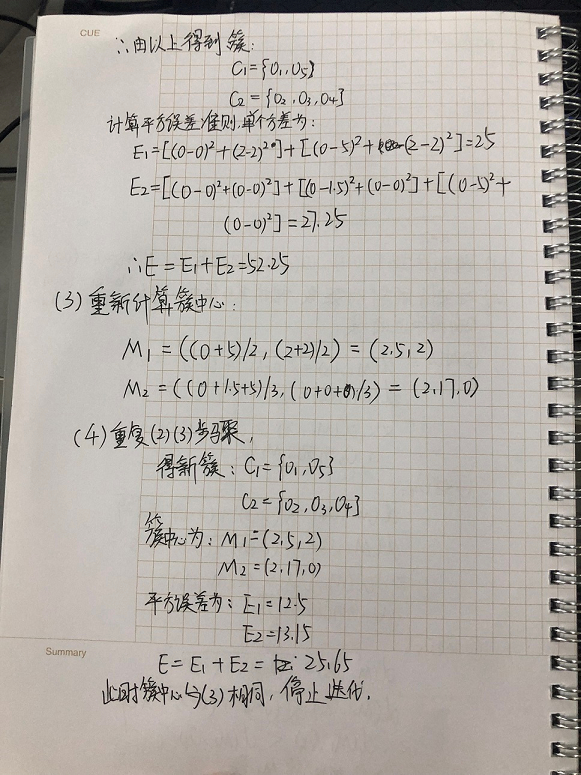 CUE
∴由以上得到簇:
C₁={O₁,O₅}
C₂={O₂,O₃,O₄}
计算平方误差准则,单个方差为:
E₁=[(0-0)²+(2-2)²]+[(0-5)²+(2-2)²]=25
E₂=[(0-0)²+(0-0)²]+[(0-1.5)²+(0-0)²]+[(0-5)²+
(0-0)²]=27.25
∴E=E₁+E₂=52.25
(3)重新计算簇中心:
M₁=((0+5)/2,(2+2)/2)=(2.5,2)
M₂=((0+1.5+5)/3,(0+0+0)/3)=(2.17,0)
(4)重复(2)(3)步骤,
得新簇:C₁={O₁,O₅}
C₂={O₂,O₃,O₄}
簇中心为:M₁=(2.5,2)
M₂=(2.17,0)
平方误差为:E₁=12.5
E₂=13.15
Summary
E=E₁+E₂=25.65
此时簇中心与(3)相同,停止迭代.